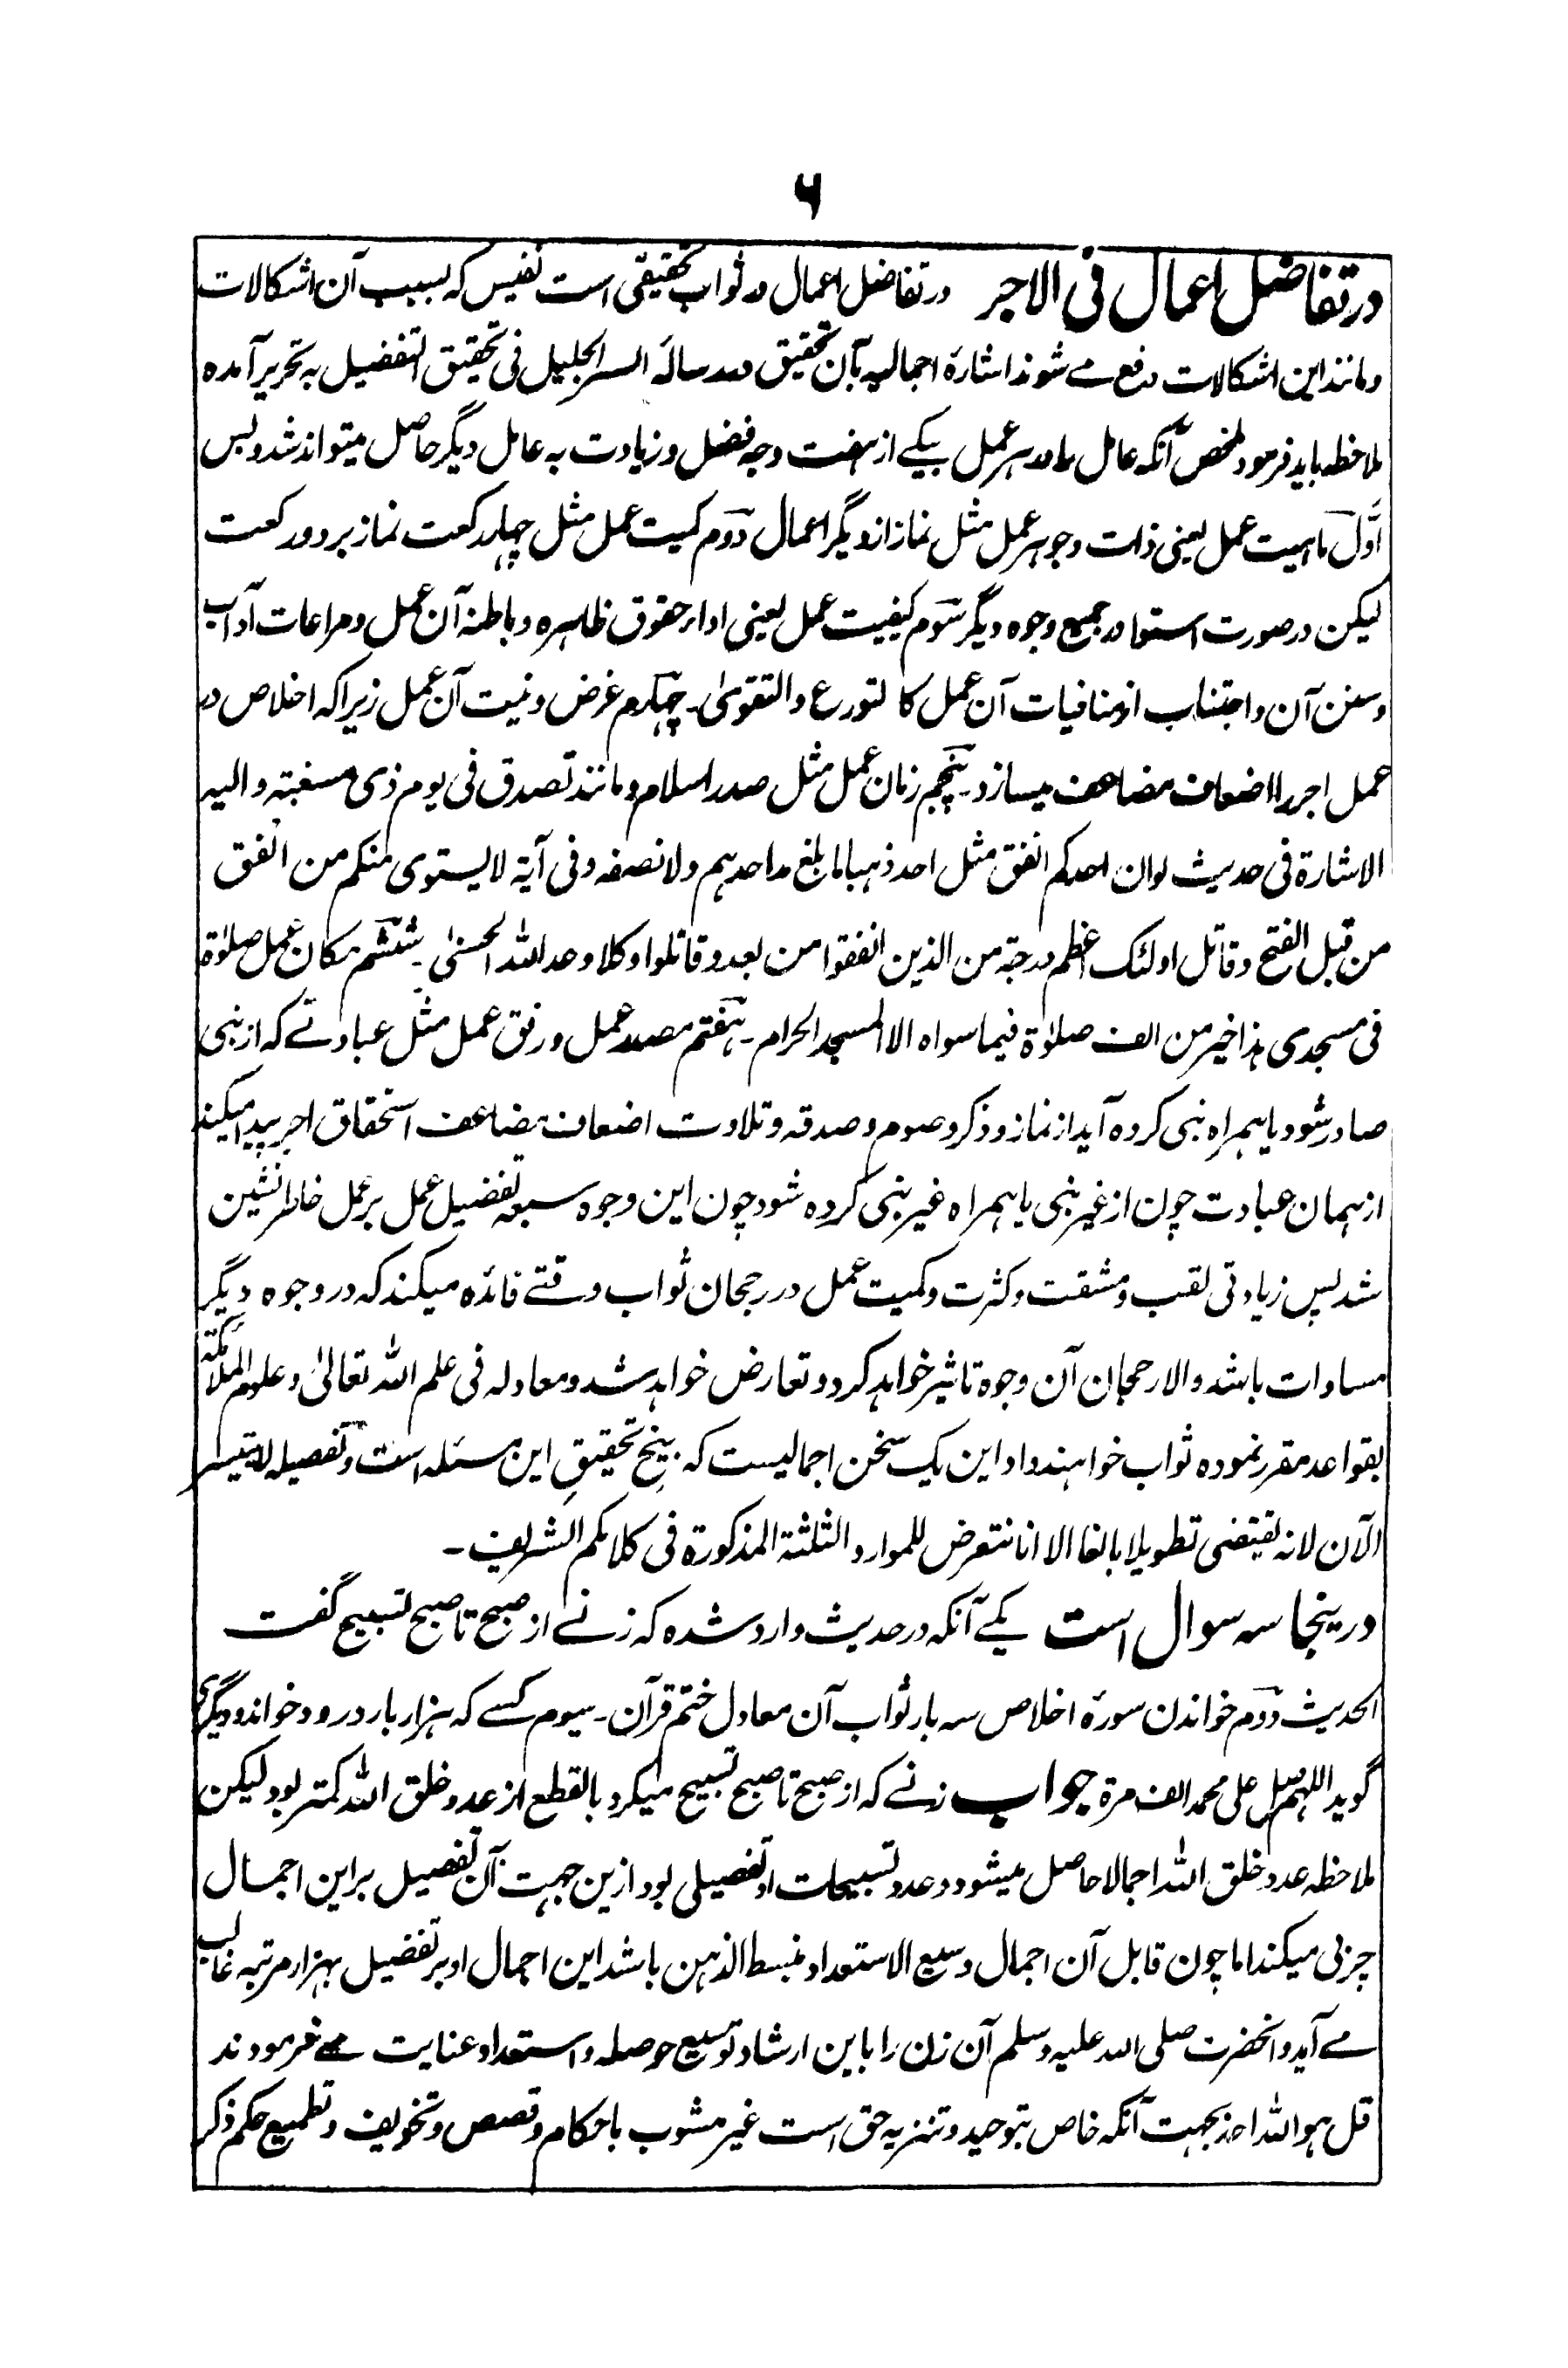 ۶
در تفاضل اعمال فی الاجر در تفاضل اعمال در ثواب تحقیقی است نفیس که بسبب آن اشکالات
و مانند این اشکالات دفع مے شوند اشارۂ اجمالیه بآن تحقیق در رسالۂ السر الجلیل فی تحقیق التفضیل به تحریر آمده
ملاحظه باید فرمود ملخص آنکه عامل را در هر عمل بیکے از هفت وجه فضل و زیادت به عامل دیگر حاصل میتواند شد و بس
اوّل ماهیت عمل یعنی ذات و جوهر عمل مثل نماز از دیگر اعمال دوم کمیت عمل مثل چهار رکعت نماز بر دو رکعت
لیکن در صورت استوا در جمیع وجوه دیگر سوم کیفیت عمل یعنی اداء حقوق ظاهره و باطنه آن عمل و مراعات آداب
و سنن آن و اجتناب از منافیات آن عمل کا لتورع والتقویٰ۔ چهارم غرض و نیت آن عمل زیرا که اخلاص در
عمل اجر را اضعاف مضاعف میسازد۔ پنجم زمان عمل مثل صدر اسلام و مانند تصدق فی یوم ذی مسغبة و الیه
الاشارة فی حدیث لو ان احدکم انفق مثل احد ذهبا ما بلغ مد احدهم ولا نصفه و فی آیة لا یستوی منکم من انفق
من قبل الفتح و قاتل اولئک اعظم درجة من الذین انفقوا من بعد و قاتلوا وکلا وعد الله الحسنیٰ۔ ششم مکان عمل صلوٰة
فی مسجدی هذا خیر من الف صلوٰة فیما سواه الا المسجد الحرام۔ هفتم مصدر عمل و رفق عمل مثل عبادتے که از نبی
صادر شود یا همراه نبی کرده آید از نماز و ذکر و صوم و صدقه و تلاوت اضعاف مضاعف استحقاق اجر پیدا میکند
از همان عبادت چون از غیر نبی یا همراه غیر نبی کرده شود چون این وجوه سبعه تفضیل عمل بر عمل خاطر نشین
شد پس زیادتی تعب و مشقت و کثرت و کمیت عمل در رجحان ثواب وقتے فائده میکند که در وجوه دیگر
مساوات باشد والا رجحان آن وجوه تاثیر خواهد کرد و تعارض خواهد شد و معادله فی علم الله تعالیٰ و علوم الملائکة
بقواعد مقرر نموده ثواب خواهند داد این یک سخن اجمالیست که بیخ تحقیقِ این مسئله است و تفصیله لا یتیسر
الآن لانه یقتضی تطویلا بالغا الا انا نتعرض للموارد الثلثة المذکورة فی کلامکم الشریف۔
درینجا سه سوال است یکے آنکه در حدیث وارد شده که زنے از صبح تا صبح تسبیح گفت
الحدیث دوم خواندن سورۂ اخلاص سه بار ثواب آن معادل ختم قرآن۔ سیوم کسے که هزار بار درود خواند و دیگرے
گوید اللهم صل علی محمد الف مرة جواب زنے که از صبح تا صبح تسبیح میکرد بالقطع از عدد خلق الله کمتر بود لیکن
ملاحظه عدد خلق الله اجمالا حاصل میشود و عدد تسبیحات او تفصیلی بود ازین جهت آن تفصیل براین اجمال
چربی میکند اما چون قابل آن اجمال وسیع الاستعداد منبسط الذهن باشد این اجمال او بر تفضیل بهزار مرتبه غالب
مے آید و آنحضرت صلی الله علیه وسلم آن زن را باین ارشاد توسیع حوصله و استعداد عنایت مے فرمودند
قل هو الله احد بجهت آنکه خاص بتوحید و تنزیه حق است غیر مشوب باحکام و قصص و تخویف و تطمیع حکم ذکر